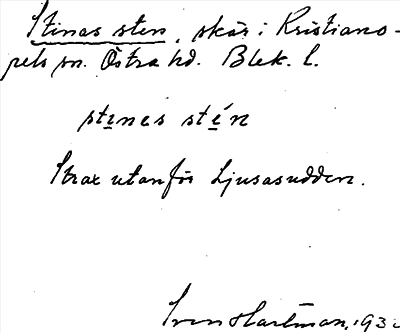 Stinas sten, skär i Kristiano-
pels sn. Östra hd. Blek. l.
stınas stɩ́n
Strax utanför Ljusasudden.
Sven Hartman, 193